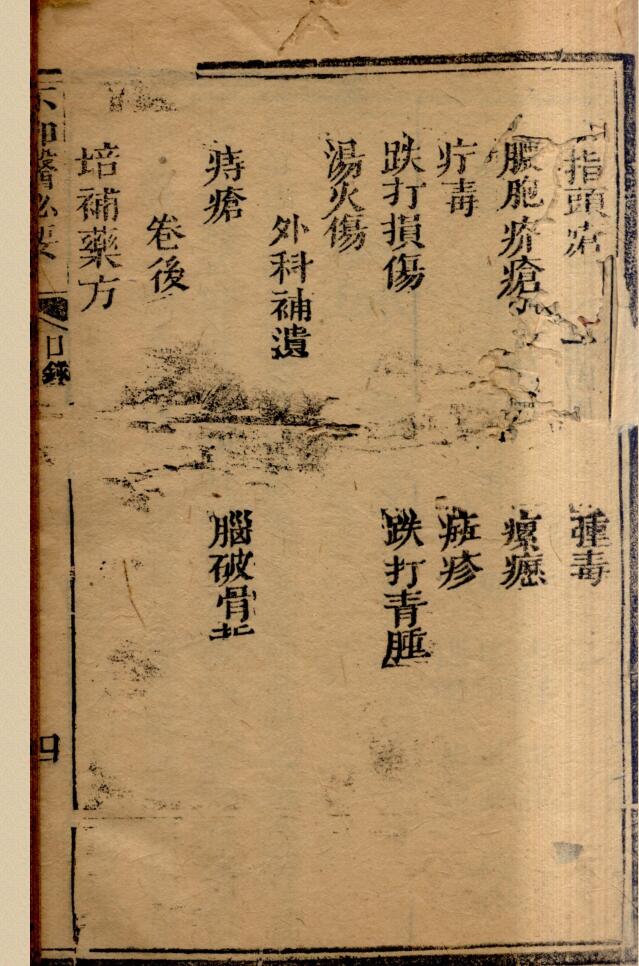 指頭
腫毒
膿胞疥瘡
瘰癧
疔毒
痧疹
跌打損傷
跌打青腫
湯火傷
外科補遺
痔瘡
腦破骨
卷後
培補藥方
不知醫必要
目錄
四